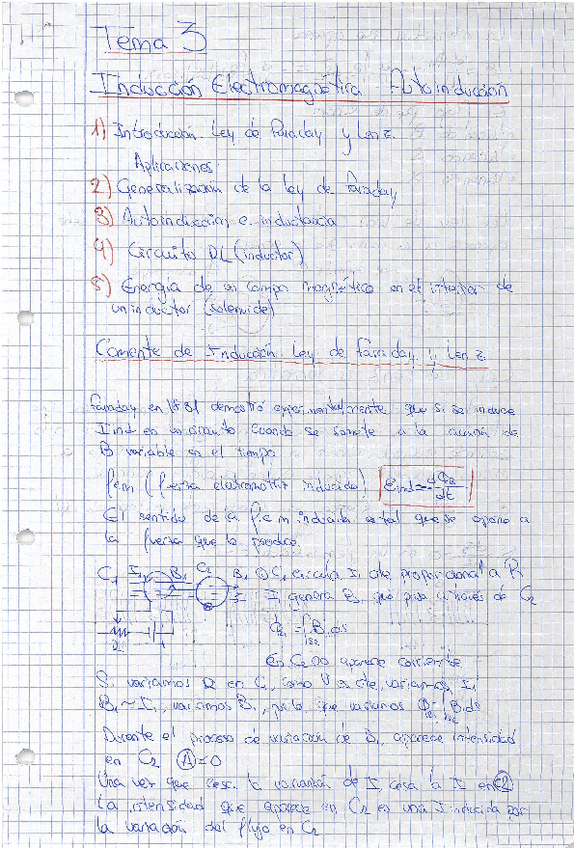 Tema 3
Inducción Electromagnética Autoinducción
1) Introducción. Ley de Faraday y Lenz.
Aplicaciones.
2) Generalización de la Ley de Faraday
3) Autoinducción e inductancia
4) Circuito RL (inductor)
5) Energía de un campo magnético en el interior de
un inductor (solenoide)
Corriente de Inducción. Ley de Faraday y Lenz.
Faraday en 1831 demostró experimentalmente que si se induce
I ind en un circuito cuando se somete a la acción de
B variable en el tiempo
fem (fuerza electromotriz inducida) Eind = -dΦB/dt
El sentido de la f.e.m inducida es tal que se opone a
la fuerza que lo produce.
C1 I1 B1 C2 B1 C1 circula I1 cte proporcional a R
I1 genera B1 que pasa a través de C2
R
En C2 no aparece corriente
Si variamos R en C1, como V es cte, variamos I1
B1 ~ I1, variamos B1, por lo que variamos
Durante el proceso de variación de B1, aparece intensidad
en C2 (A) ≠ 0
Una vez que cesa la variación de I, cesa la I2 en C2
La intensidad que aparece en C2 es una I inducida por
la variación del flujo en C2